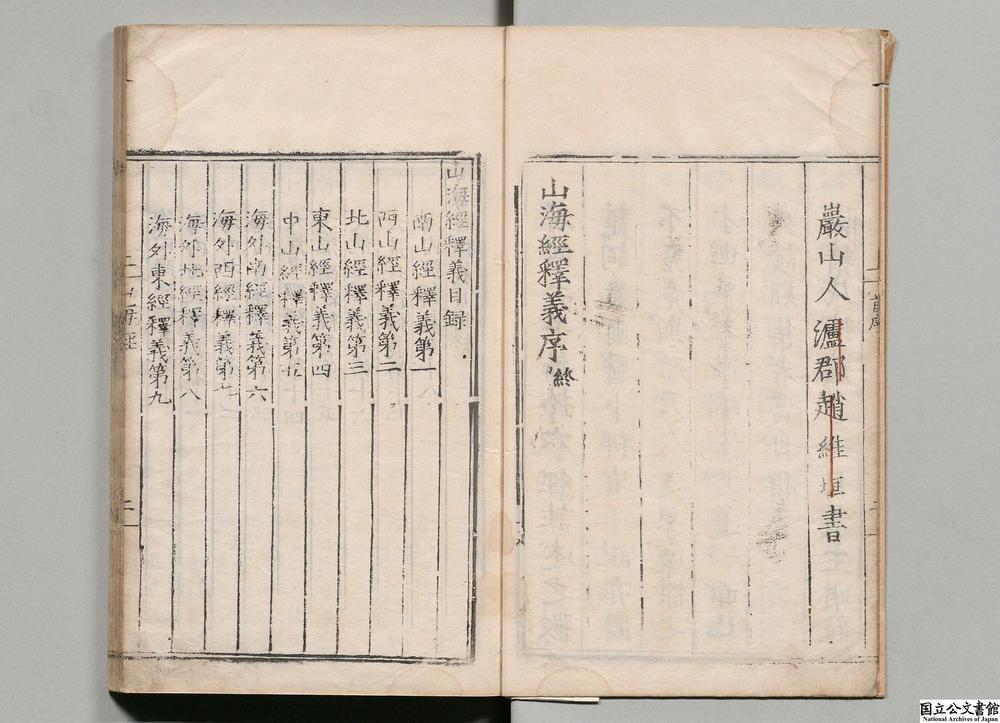 巖山人瀘郡趙維垣書
山海經釋義序終
山海經釋義目録
南山經釋義第一
西山經釋義第二
北山經釋義第三
東山經釋義第四
中山經釋義第五
海外南經釋義第六
海外西經釋義第七
海外北經釋義第八
海外東經釋義第九
国立公文書館
National Archives of Japan